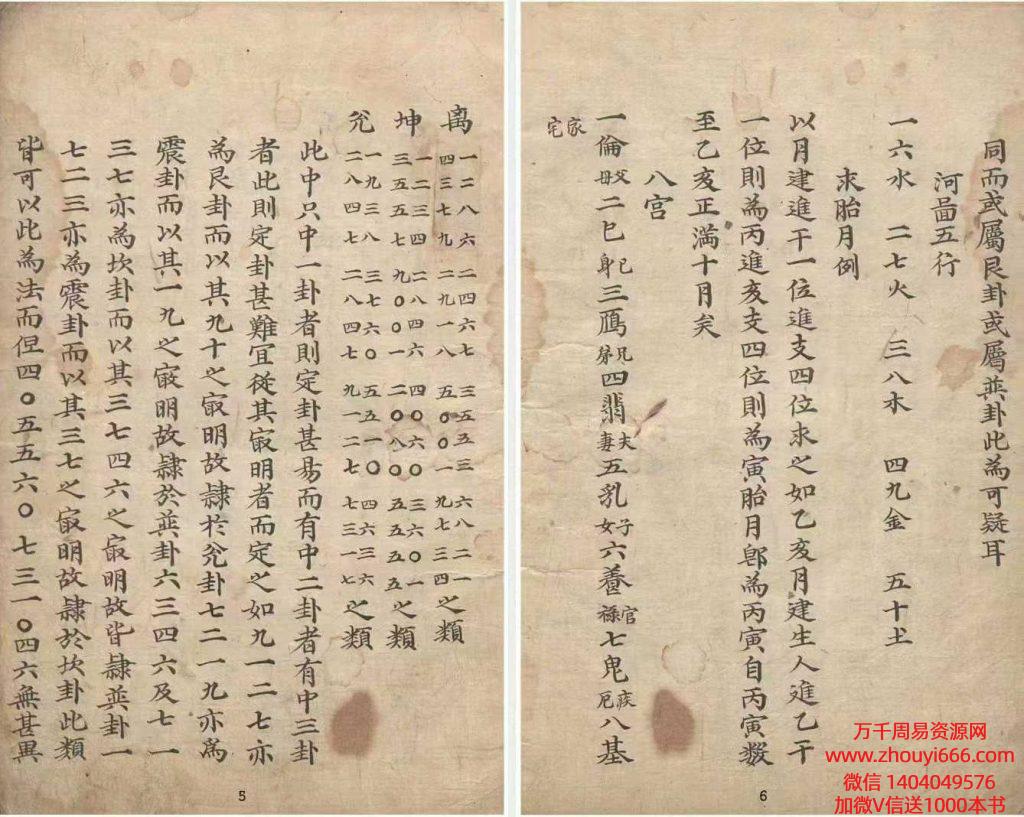 离 一二八六 二四六七 三五五三 六八二一
四三七九 二九一八 五〇〇一 九七三四之類
坤 一二三四 二八四六 四〇六〇 三六〇一
三五五七 九〇〇一 二〇八〇 五五五五之類
兊 一九三八 三七六〇 五五一〇 四六三六
二八四七 二八四七 九一二七 七三一七之類
此中只中一卦者則定卦甚易而有中二卦者有中三卦
者此則定卦甚難宜従其㝡明者而定之如九一二七亦
為艮卦而以其九十之㝡明故隷於兊卦七二一九亦為
震卦而以其一九之㝡明故隷於巽卦六三四六及七一
三七亦為坎卦而以其三七四六之㝡明故皆隷巽卦一
七二三亦為震卦而以其三七之㝡明故隷於坎卦此類
皆可以此為法而但四〇五五六〇七三一〇四六無甚異
5
同而或屬艮卦或屬巽卦此為可疑耳
河啚五行
一六水 二七火 三八木 四九金 五十土
求胎月例
以月建進干一位進支四位求之如乙亥月建生人進乙干
一位則為丙進亥支四位則為寅胎月卽為丙寅自丙寅數
至乙亥正滿十月矣
八宮
一倫父母二巳己身三鴈兄弟四翡夫妻五乳子女六養官祿七鬼疾厄八基
家宅
6
万千周易资源网
www.zhouyi666.com
微信 1404049576
加微V信送1000本书